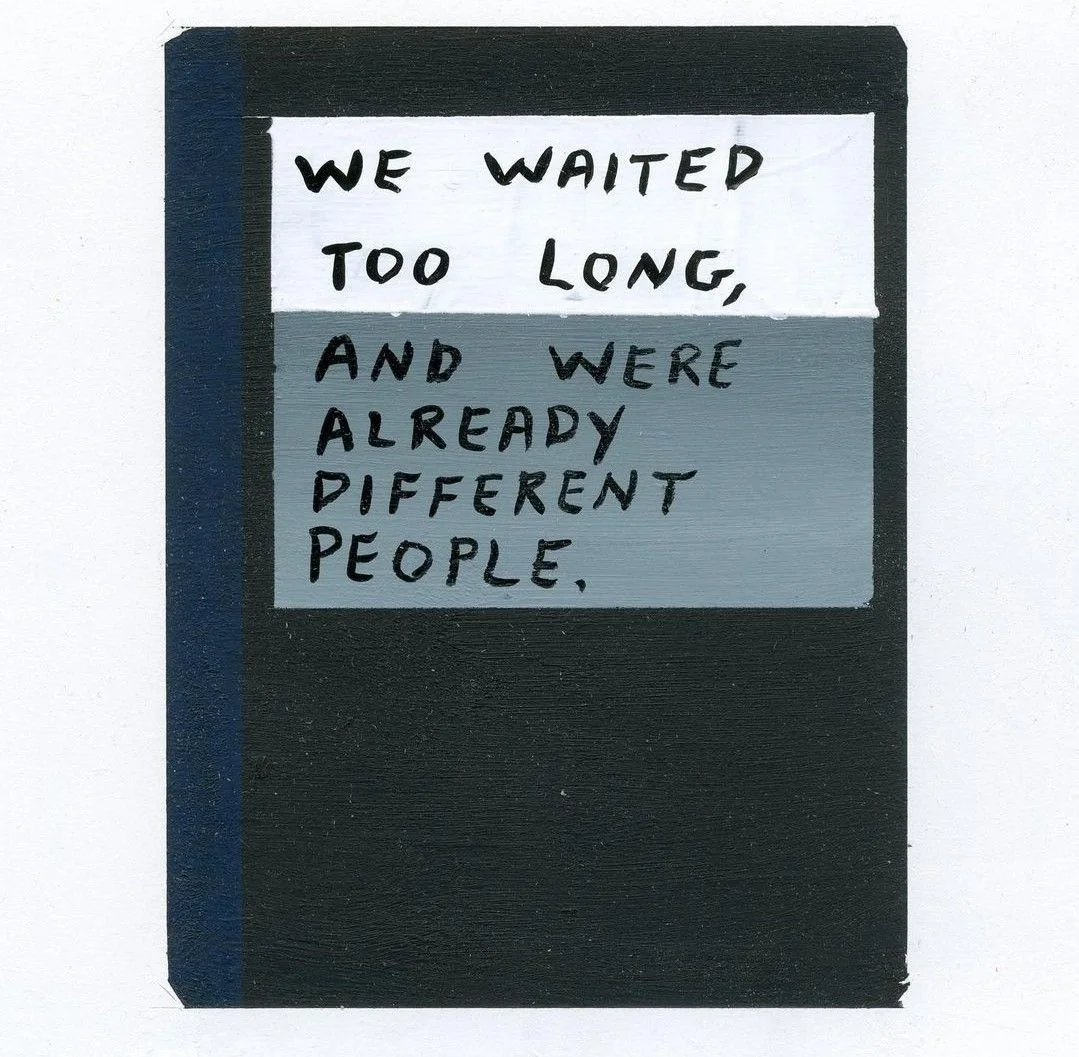 WE WAITED
TOO LONG,
AND WERE
ALREADY
DIFFERENT
PEOPLE.